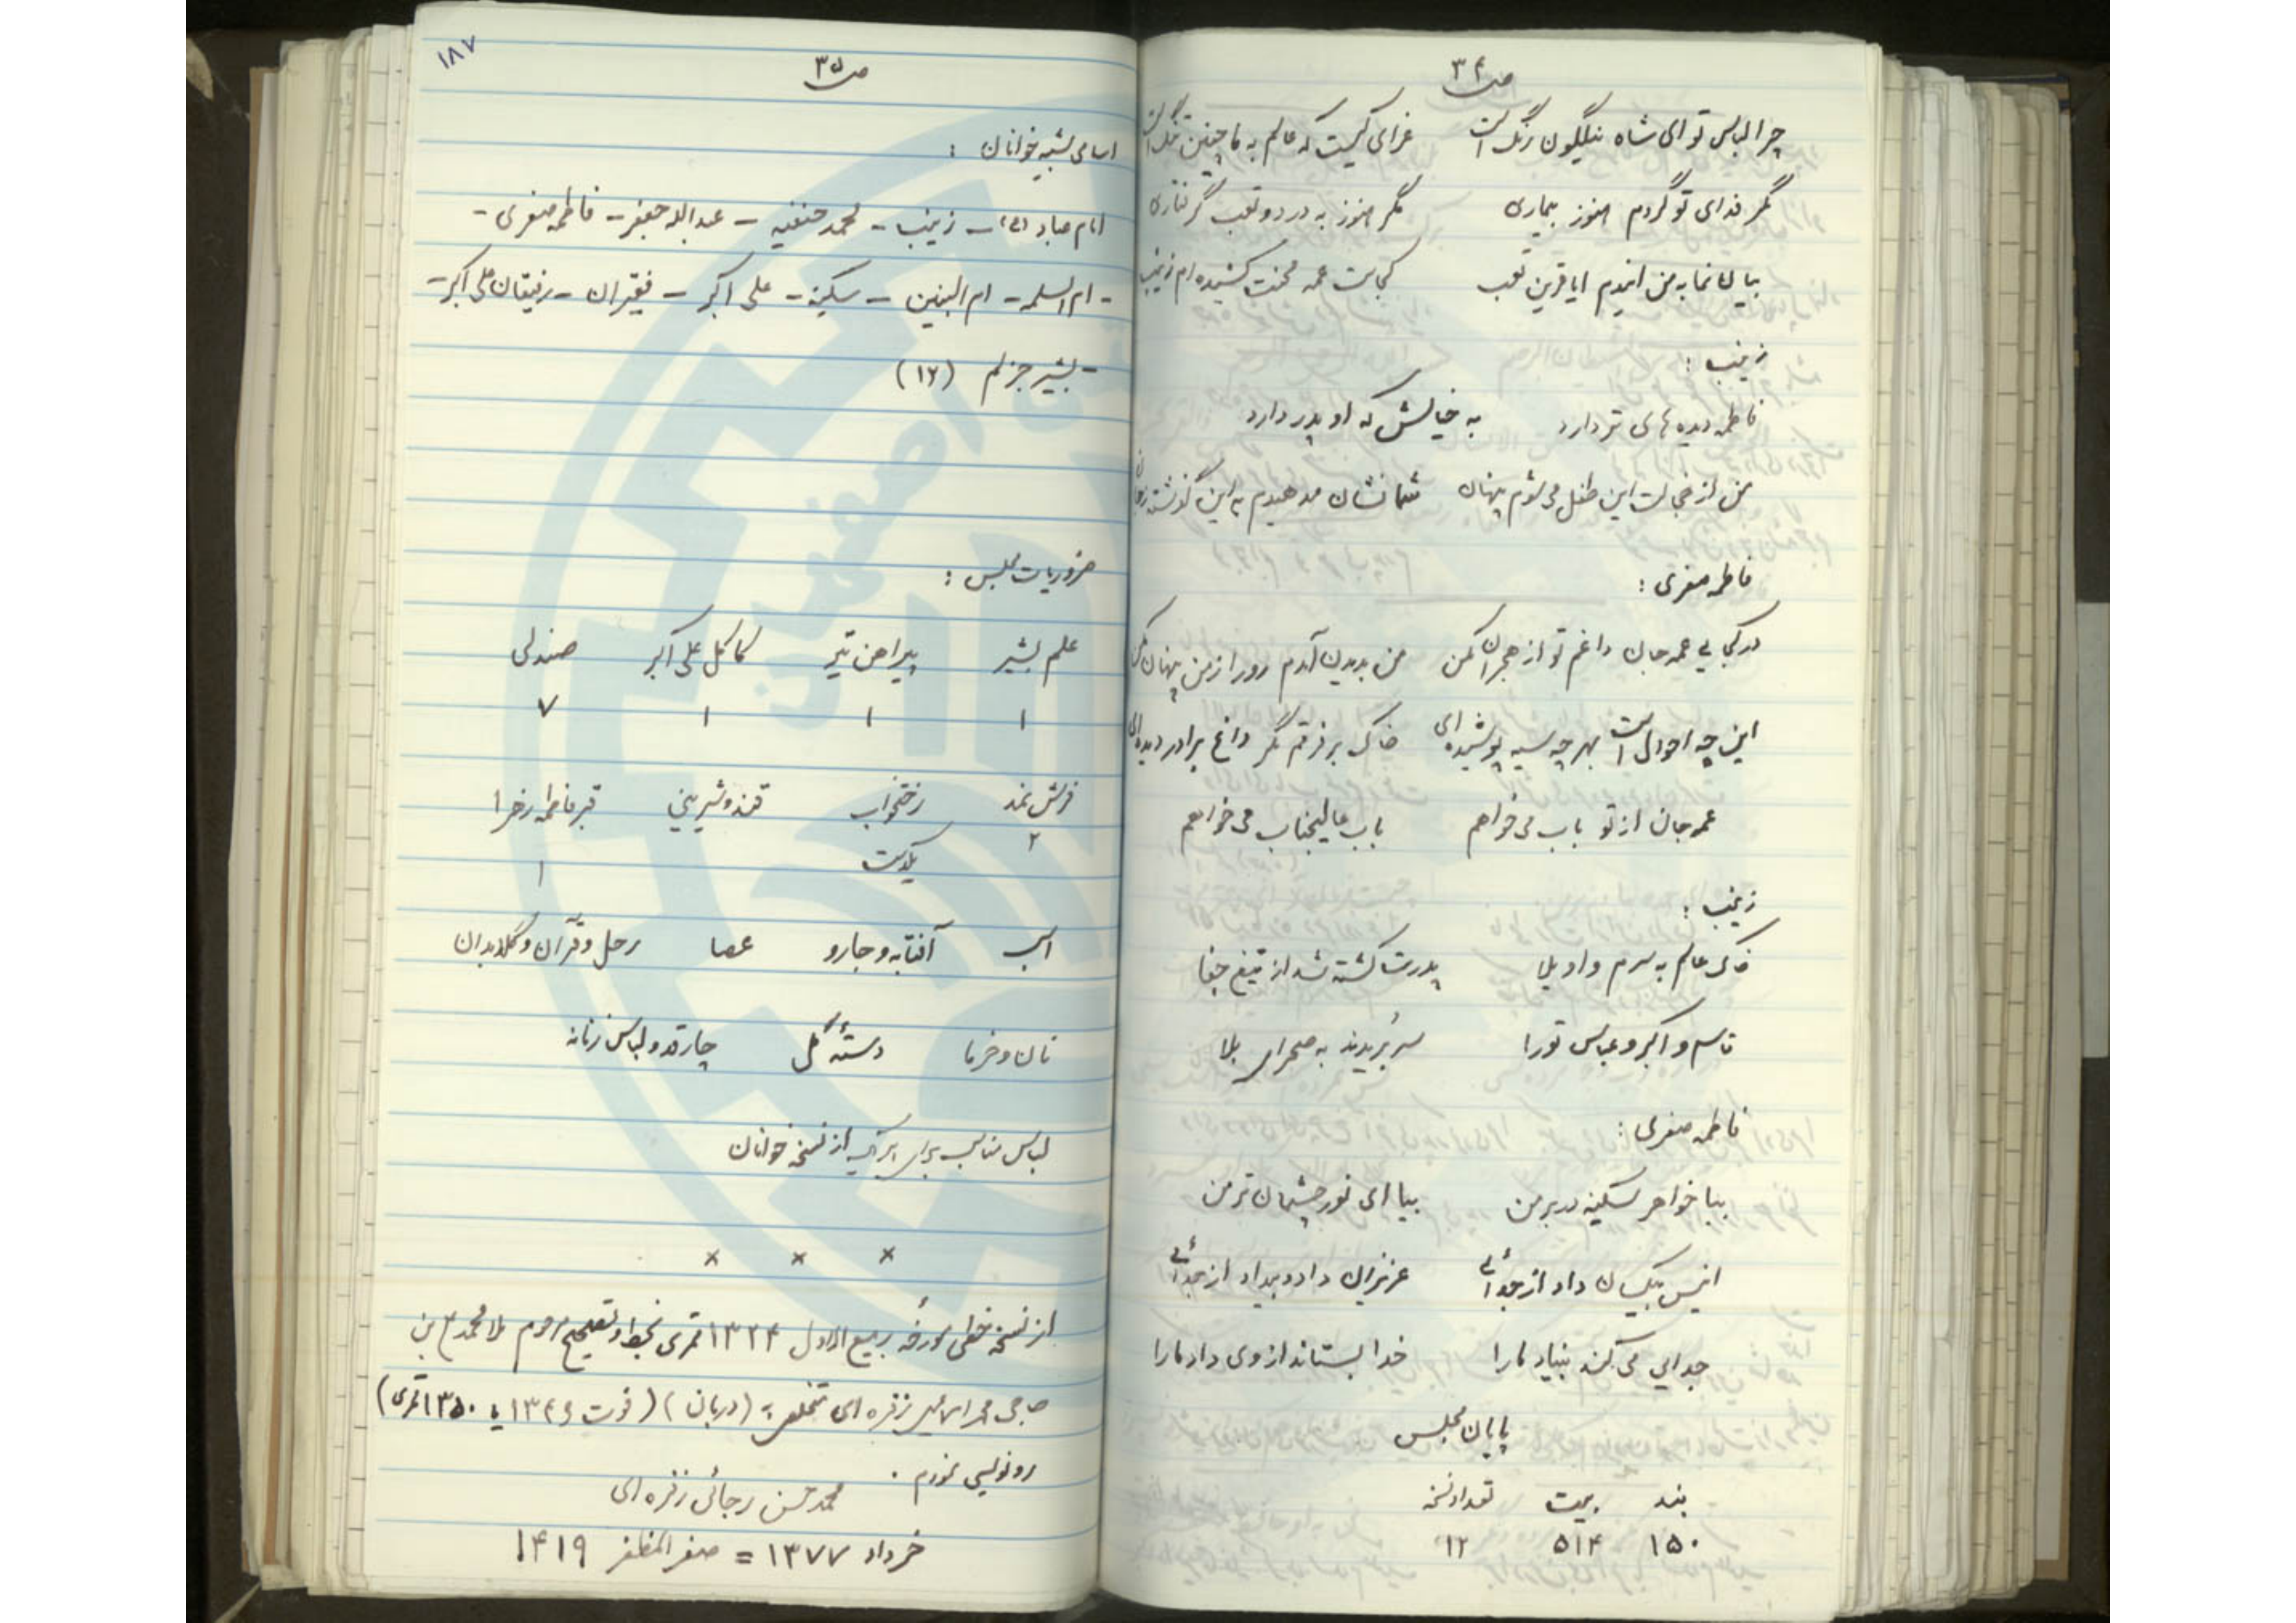 ص ۳۴
چرا لباس تو ای شاه نیلگون رنگ است عزای کیست که عالم به ما چنین تنگ است
مگر فدای تو گردم هنوز بیماری مگر هنوز به درد و تعب گرفتاری
بیا به من ایندم ایا قرین تعب کجاست عمه محنت کشیده ام زینب
زینب :
فاطمه دیده های تر دارد به خیالش که او پدر دارد
من از خجالت این طفل می شوم پنهان شما نشان مدهیدم به این گذشته ز جان
فاطمه صغری :
در کجایی عمه جان داغم تو از هجران مکن من بدیدن آمدم رو را ز من پنهان مکن
این چه احوال است بهر چه سیه پوشیده ای خاک بر فرقم مگر داغ برادر دیده ای
عمه جان از تو باب می خواهم باب عالیجناب می خواهم
زینب :
خاک عالم به سرم واویلا پدرت کشته شد از تیغ جفا
قاسم و اکبر و عباس تو را سر بُریدند به صحرای بلا
فاطمه صغری :
بیا خواهر سکینه در بر من بیا ای نور چشمان تر من
انیس بیکسان داد از جدائی عزیزان داد و بیداد از جدائی
جدایی می کند بنیاد ما را خدا بستاند از وی داد ما را
پایان مجلس
بند بیت تعداد نسخه
۱۵۰ ۵۱۴ ۱۲
۱۸۷
ص ۳۵
اسامی شبیه خوانان :
امام سجاد (ع) - زینب - محمد حنفیه - عبدالله جعفر - فاطمه صغری -
- ام السلمه - ام البنین - سکینه - علی اکبر - فقیران - رفیقان علی اکبر -
- بشیر جزلم (۱۲)
ضروریات مجلس :
علم بشیر پیراهن تیر کاکل علی اکبر صندلی
۱ ۱ ۱ ۷
فرش نمد رختخواب قند و شیرینی قبر فاطمه زهرا
۲ یکدست ۱
اسب آفتابه و جارو عصا رحل و قرآن و گلابدان
نان و خرما دستهٔ گل چارقد و لباس زنانه
لباس مناسب برای هر یک از نسخه خوانان
× × ×
از نسخه خطی مورخهٔ ربیع الاول ۱۳۳۴ قمری بخط و تصحیح مرحوم ملا محمد بن
حاجی زفره ای متخلص به (دربان) (فوت ۱۳۴۶ یا ۱۳۵۰ قمری)
رونویسی نمودم .
محمد حسن رجائی زفره ای
خرداد ۱۳۷۷ = صفر المظفر ۱۴۱۹